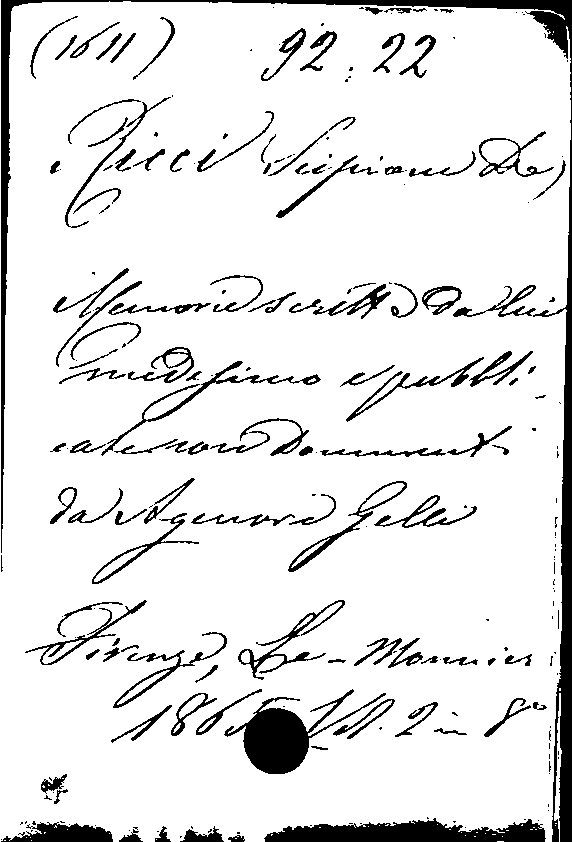 (1611) 92.22
Ricci Scipione De
Memorie scritte da lui
medesimo e pubbli-
cate con Documenti
da Agenore Gelli
Firenze, Le-Monnier
1865 Vol. 2 in 8°